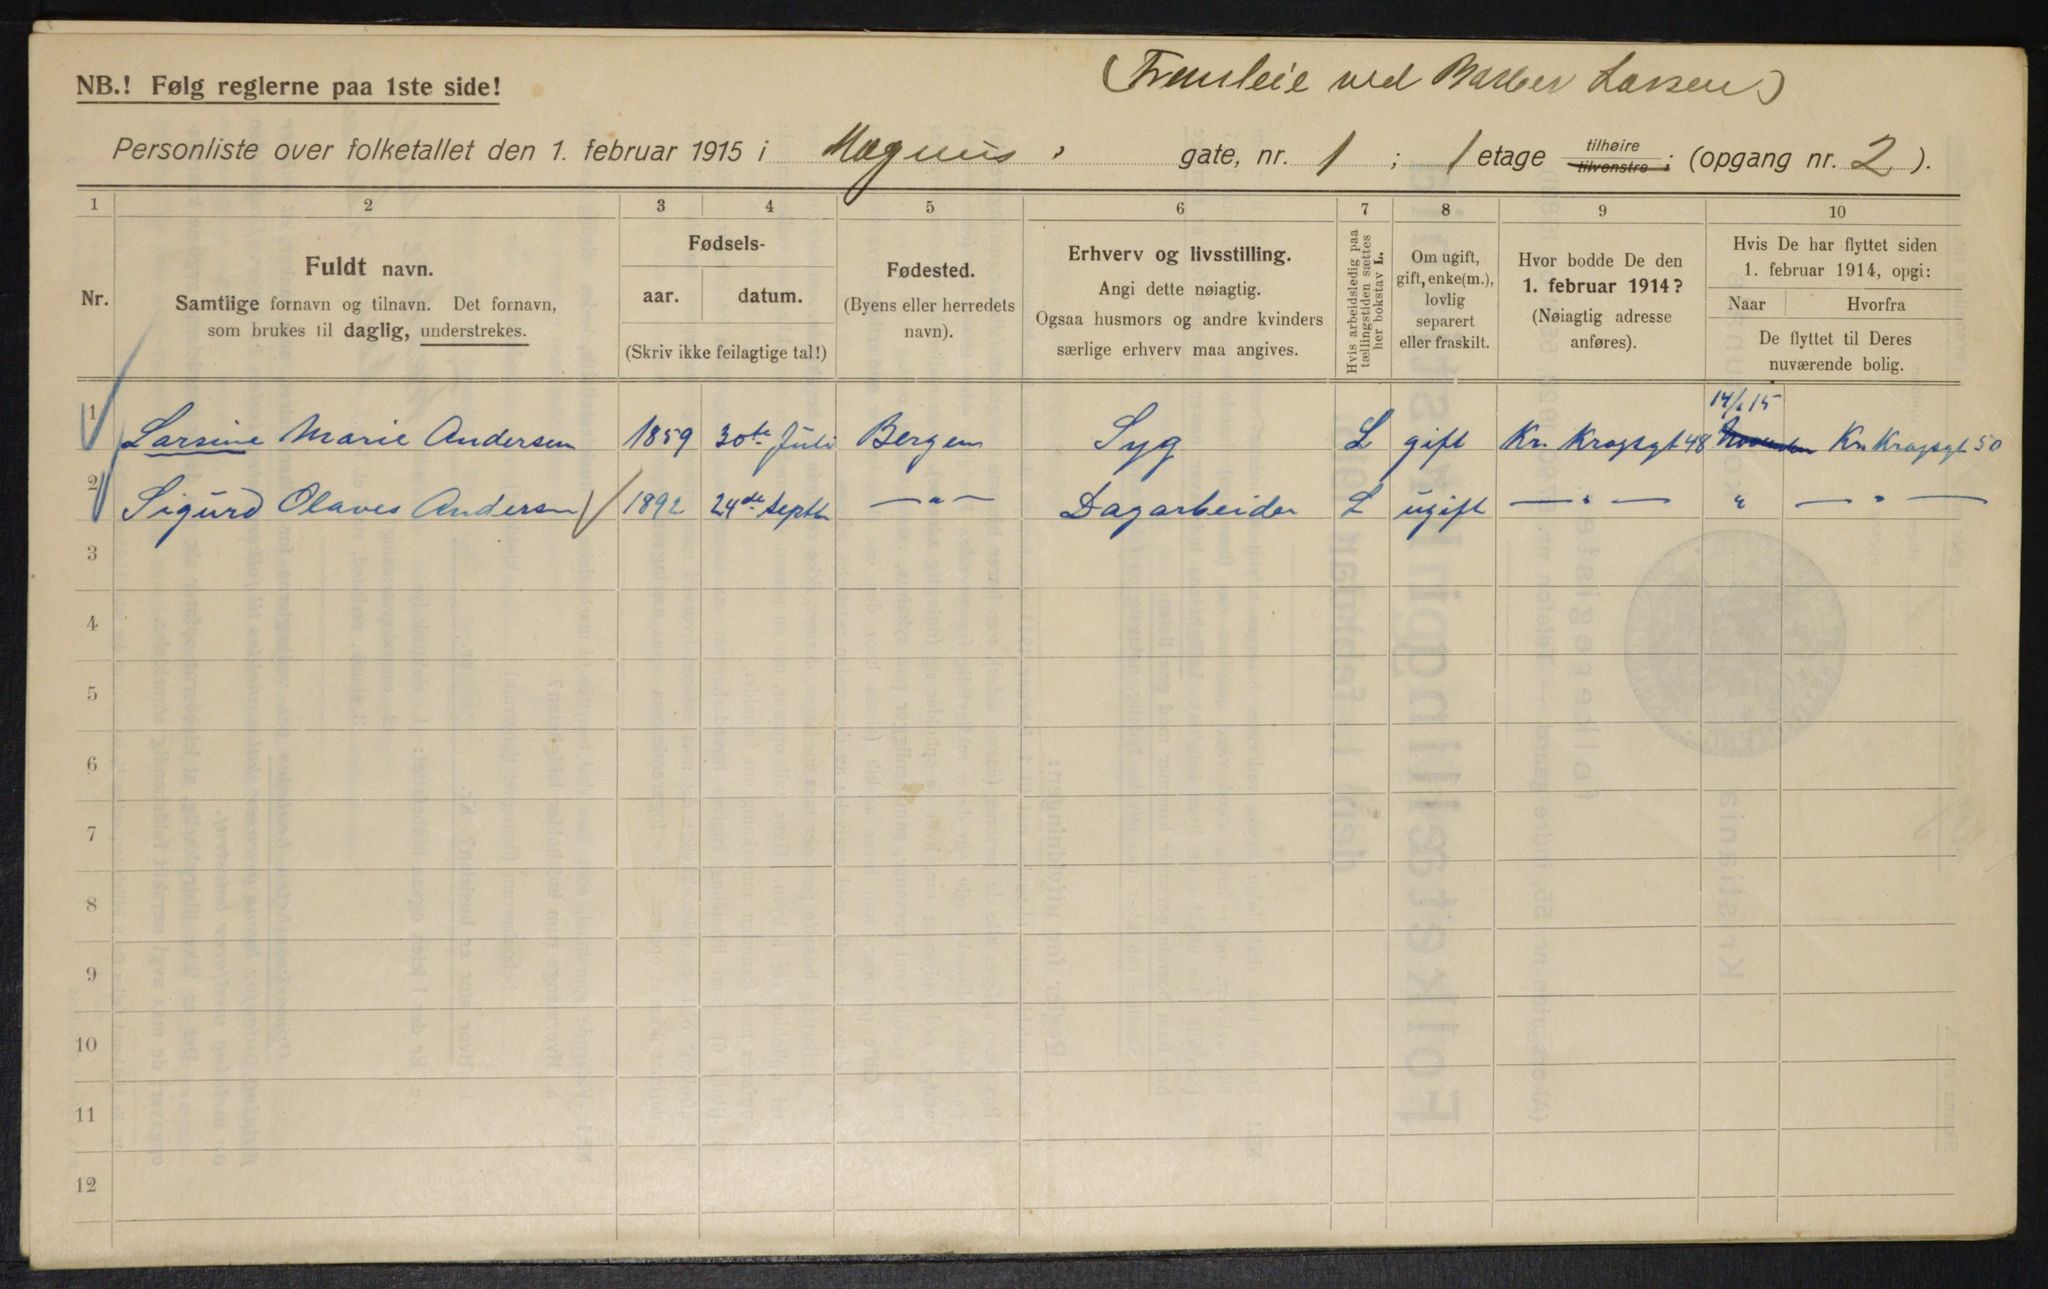 (Fremleie ved Barber Larsen)
NB.! Følg reglerne paa 1ste side!
Personliste over folketallet den 1. februar 1915 i Magnus gate, nr. 1 ; 1 etage tilhøire tilvenstre ; (opgang nr. 2 ).
1 2 3 4 5 6 7 8 9 10
Nr.
Fuldt navn.
Samtlige fornavn og tilnavn. Det fornavn,
som brukes til daglig, understrekes.
Fødsels-
aar. datum.
(Skriv ikke feilagtige tal!)
Fødested.
(Byens eller herredets
navn).
Erhverv og livsstilling.
Angi dette nøiagtig.
Ogsaa husmors og andre kvinders
særlige erhverv maa angives.
Hvis arbeidsledig paa
tællingstiden sættes
her bokstav L.
Om ugift,
gift, enke(m.),
lovlig
separert
eller fraskilt.
Hvor bodde De den
1. februar 1914?
(Nøiagtig adresse
anføres).
Hvis De har flyttet siden
1. februar 1914, opgi:
Naar Hvorfra
De flyttet til Deres
nuværende bolig.
1 Larsine Marie Andersen 1859 30te Juli Bergen Syg L gift Kr. Krogsgt 48 14/1 15 Kr. Krogsgt 50
2 Sigurd Olaves Andersen 1892 24de Septb — " — Dagarbeider L ugift — " — " — " —
3
4
5
6
7
8
9
10
11
12